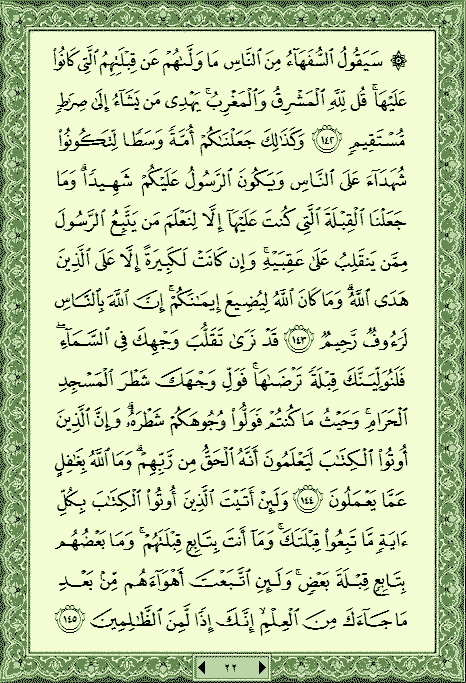 ۞ سَيَقُولُ ٱلسُّفَهَآءُ مِنَ ٱلنَّاسِ مَا وَلَّىٰهُمْ عَن قِبْلَتِهِمُ ٱلَّتِى كَانُوا۟
عَلَيْهَا ۚ قُل لِّلَّهِ ٱلْمَشْرِقُ وَٱلْمَغْرِبُ ۚ يَهْدِى مَن يَشَآءُ إِلَىٰ صِرَٰطٍ
مُّسْتَقِيمٍ ١٤٢ وَكَذَٰلِكَ جَعَلْنَٰكُمْ أُمَّةً وَسَطًا لِّتَكُونُوا۟
شُهَدَآءَ عَلَى ٱلنَّاسِ وَيَكُونَ ٱلرَّسُولُ عَلَيْكُمْ شَهِيدًا ۗ وَمَا
جَعَلْنَا ٱلْقِبْلَةَ ٱلَّتِى كُنتَ عَلَيْهَآ إِلَّا لِنَعْلَمَ مَن يَتَّبِعُ ٱلرَّسُولَ
مِمَّن يَنقَلِبُ عَلَىٰ عَقِبَيْهِ ۚ وَإِن كَانَتْ لَكَبِيرَةً إِلَّا عَلَى ٱلَّذِينَ
هَدَى ٱللَّهُ ۗ وَمَا كَانَ ٱللَّهُ لِيُضِيعَ إِيمَٰنَكُمْ ۚ إِنَّ ٱللَّهَ بِٱلنَّاسِ
لَرَءُوفٌ رَّحِيمٌ ١٤٣ قَدْ نَرَىٰ تَقَلُّبَ وَجْهِكَ فِى ٱلسَّمَآءِ ۖ
فَلَنُوَلِّيَنَّكَ قِبْلَةً تَرْضَىٰهَا ۚ فَوَلِّ وَجْهَكَ شَطْرَ ٱلْمَسْجِدِ
ٱلْحَرَامِ ۚ وَحَيْثُ مَا كُنتُمْ فَوَلُّوا۟ وُجُوهَكُمْ شَطْرَهُۥ ۗ وَإِنَّ ٱلَّذِينَ
أُوتُوا۟ ٱلْكِتَٰبَ لَيَعْلَمُونَ أَنَّهُ ٱلْحَقُّ مِن رَّبِّهِمْ ۗ وَمَا ٱللَّهُ بِغَٰفِلٍ
عَمَّا يَعْمَلُونَ ١٤٤ وَلَئِنْ أَتَيْتَ ٱلَّذِينَ أُوتُوا۟ ٱلْكِتَٰبَ بِكُلِّ
ءَايَةٍ مَّا تَبِعُوا۟ قِبْلَتَكَ ۚ وَمَآ أَنتَ بِتَابِعٍ قِبْلَتَهُمْ ۚ وَمَا بَعْضُهُم
بِتَابِعٍ قِبْلَةَ بَعْضٍ ۚ وَلَئِنِ ٱتَّبَعْتَ أَهْوَآءَهُم مِّنۢ بَعْدِ
مَا جَآءَكَ مِنَ ٱلْعِلْمِ ۙ إِنَّكَ إِذًا لَّمِنَ ٱلظَّٰلِمِينَ ١٤٥
٢٢